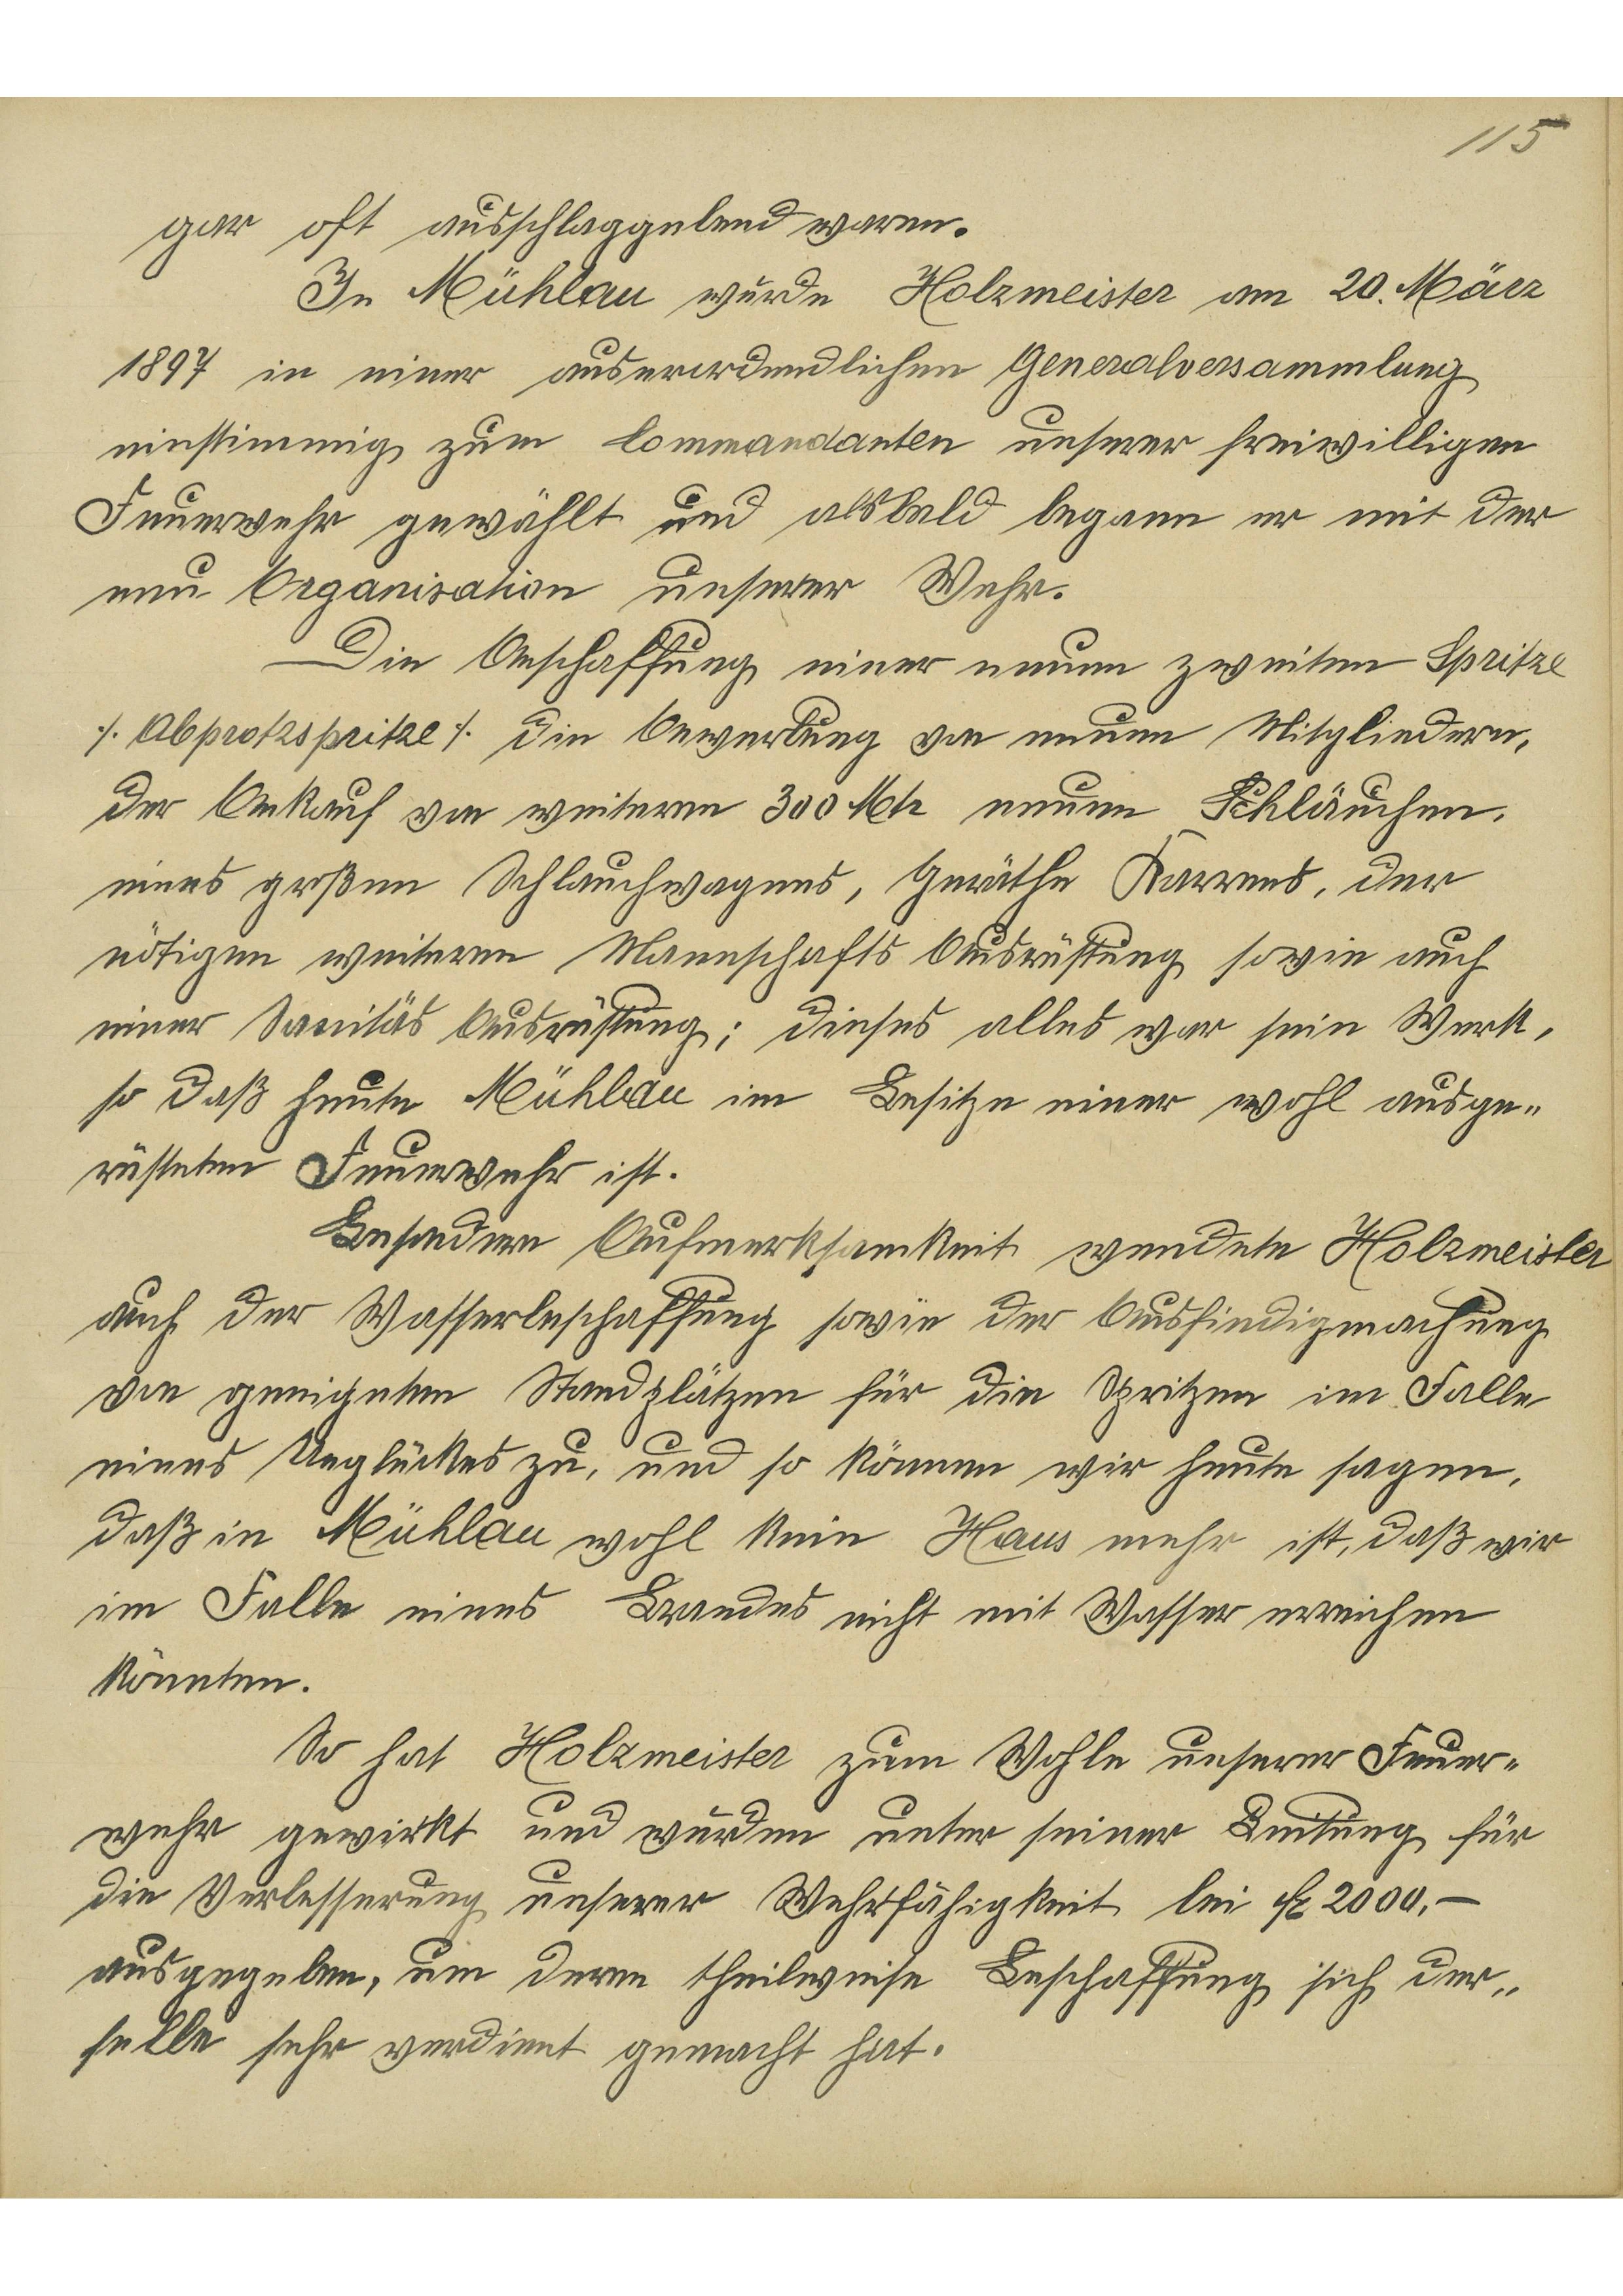 115
gar oft ausschlaggebend waren.
In Mühlau wurde Holzmeister am 20. März
1897 in einer auserordendlichen Generalversammlung
einstimmig zum Commandanten unserer freiwilligen
Feuerwehr gewählt und alsbald begann er mit der
neu Organisation unserer Wehr.
Die Anschaffung einer neuen zweiten Spritze
./. Abprotzspritze ./. die Anwerbung von neuen Mitgliedern,
der Ankauf von weiteren 300 Mtr neuen Schläuchen,
eines großen Schlauchwagens, Geräthe Karrens, der
nötigen weiteren Mannschafts Ausrüstung sowie auch
einer Sanitäs Ausrüstung; dieses alles war sein Werk,
so daß heute Mühlau im Besitze einer wohl ausge-
rüsteten Feuerwehr ist.
Besondere Aufmerksamkeit wendete Holzmeister
auch der Wasserbeschaffung sowie der Ausfindigmachung
von geeigneten Standplätzen für die Spritzen im Falle
eines Unglückes zu, und so können wir heute sagen,
daß in Mühlau wohl kein Haus mehr ist, daß wir
im Falle eines Brandes nicht mit Wasser erreichen
könnten.
So hat Holzmeister zum Wohle unserer Feuer-
wehr gewirkt und wurden unter seiner Leitung für
die Verbesserung unserer Wehrfähigkeit bei fl 2000.—
ausgegeben, um deren theilweise Beschaffung sich der-
selbe sehr verdient gemacht hat.